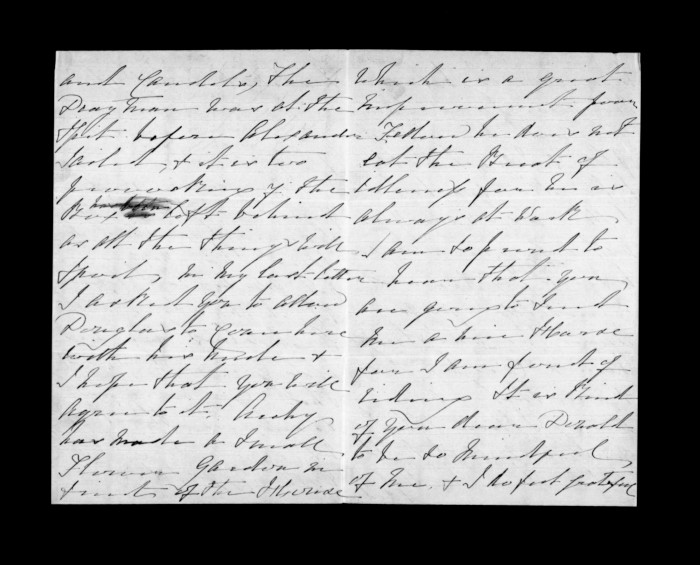 and Candels, The
Drayman was at the
Spit before Alexander
Sailed, & it is too
provoking if the
Box has been left behind
as all the things will
Spoil, in my last letter
I asked you to allow
Douglas to Come here
with his Uncle &
I hope that you will
agree to it. Archy
has made a Small
Flower Garden in
front of the House
Which is a great
improvement poor
Fellow he does not
eat the Bread of
Idleness for he is
always at Work,
I am so proud to
hear that you
are going to Send
me a nice Horse
for I am fond of
riding It is Kind
of you dear Donald
to be so Mindful
of Me. & I do feel grateful